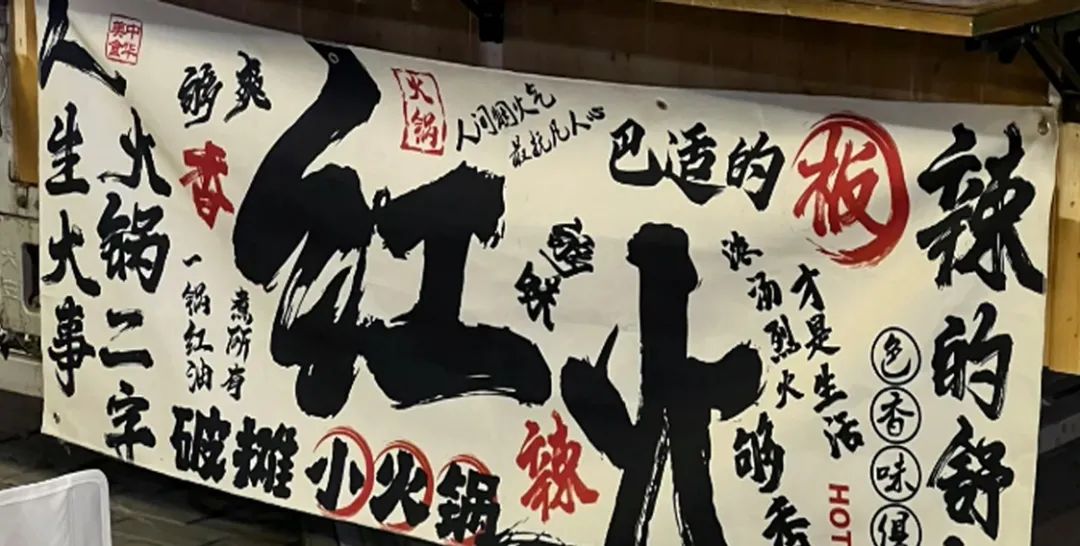 中华
美食
人
生
大
事
火锅二字
够爽
香
一锅红油
煮所有
破摊小火锅
红火
火锅
人间烟火气
最抚凡人心
辣
巴适的板
滚汤烈火
才是生活
够香
HOT
色香味俱
辣的舒